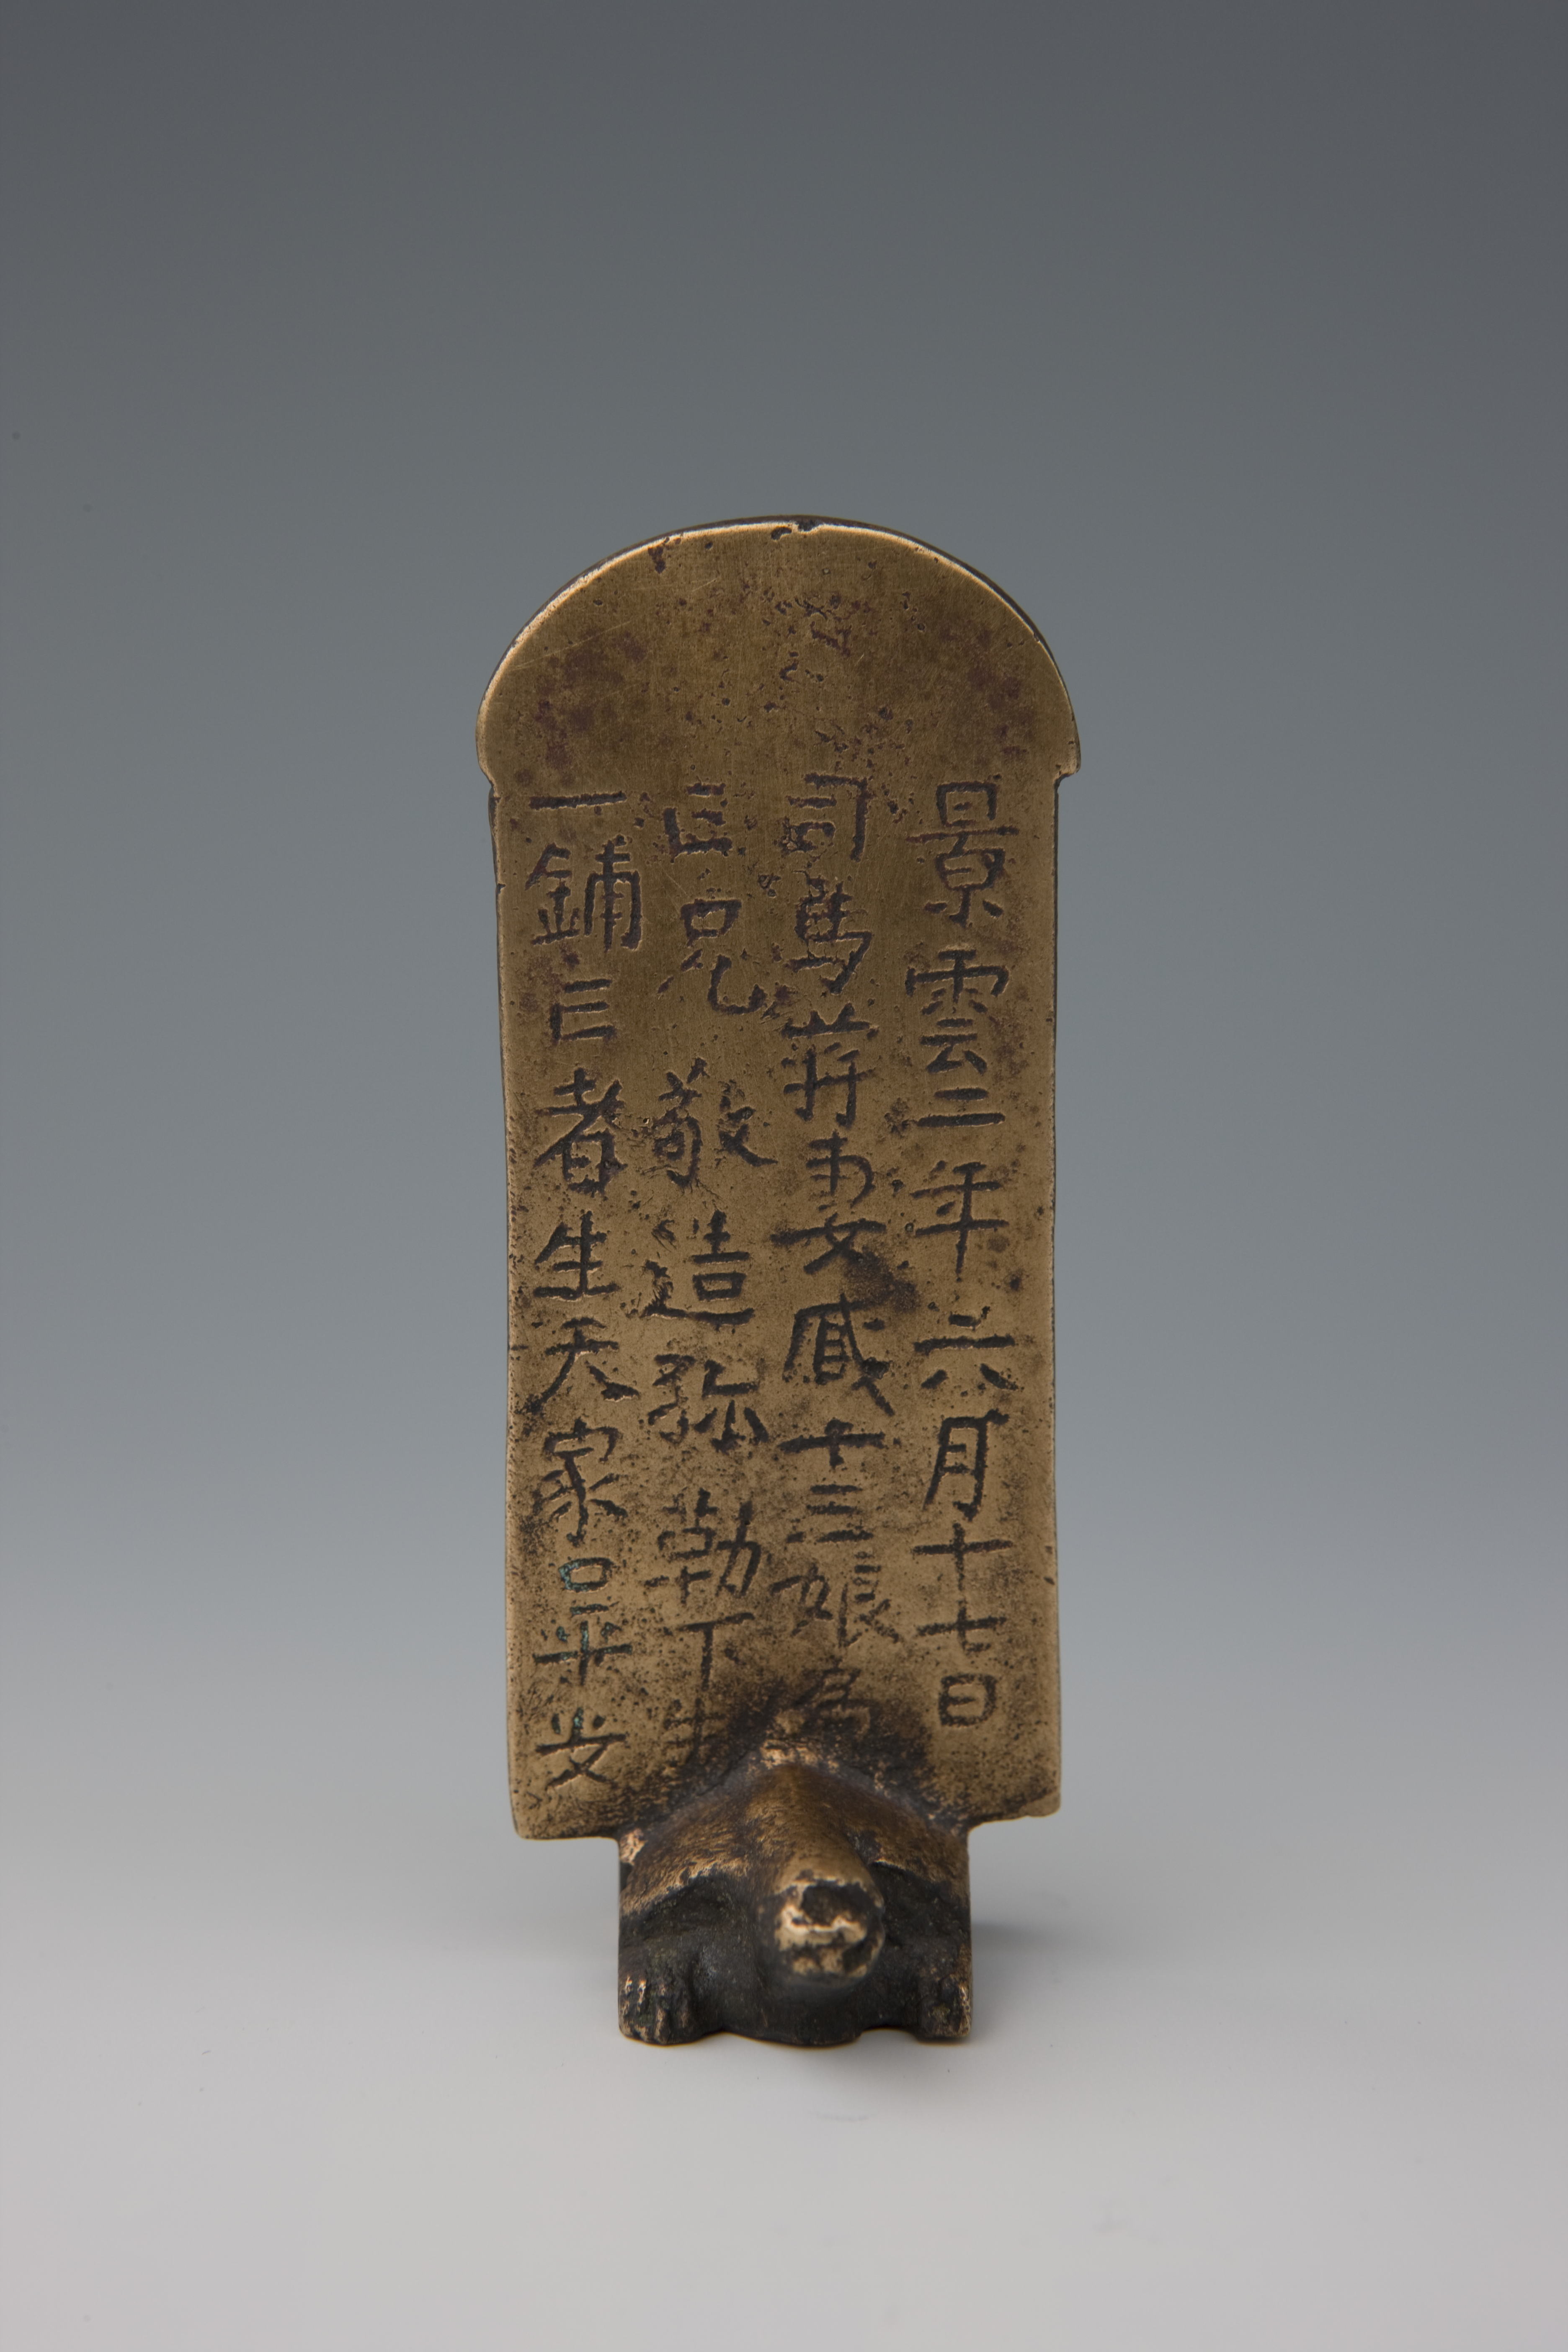 景雲二年六月十七日
司馬蔣妻臧十三娘為
亡兄敬造弥勒下生
一鋪亡者生天家口平安